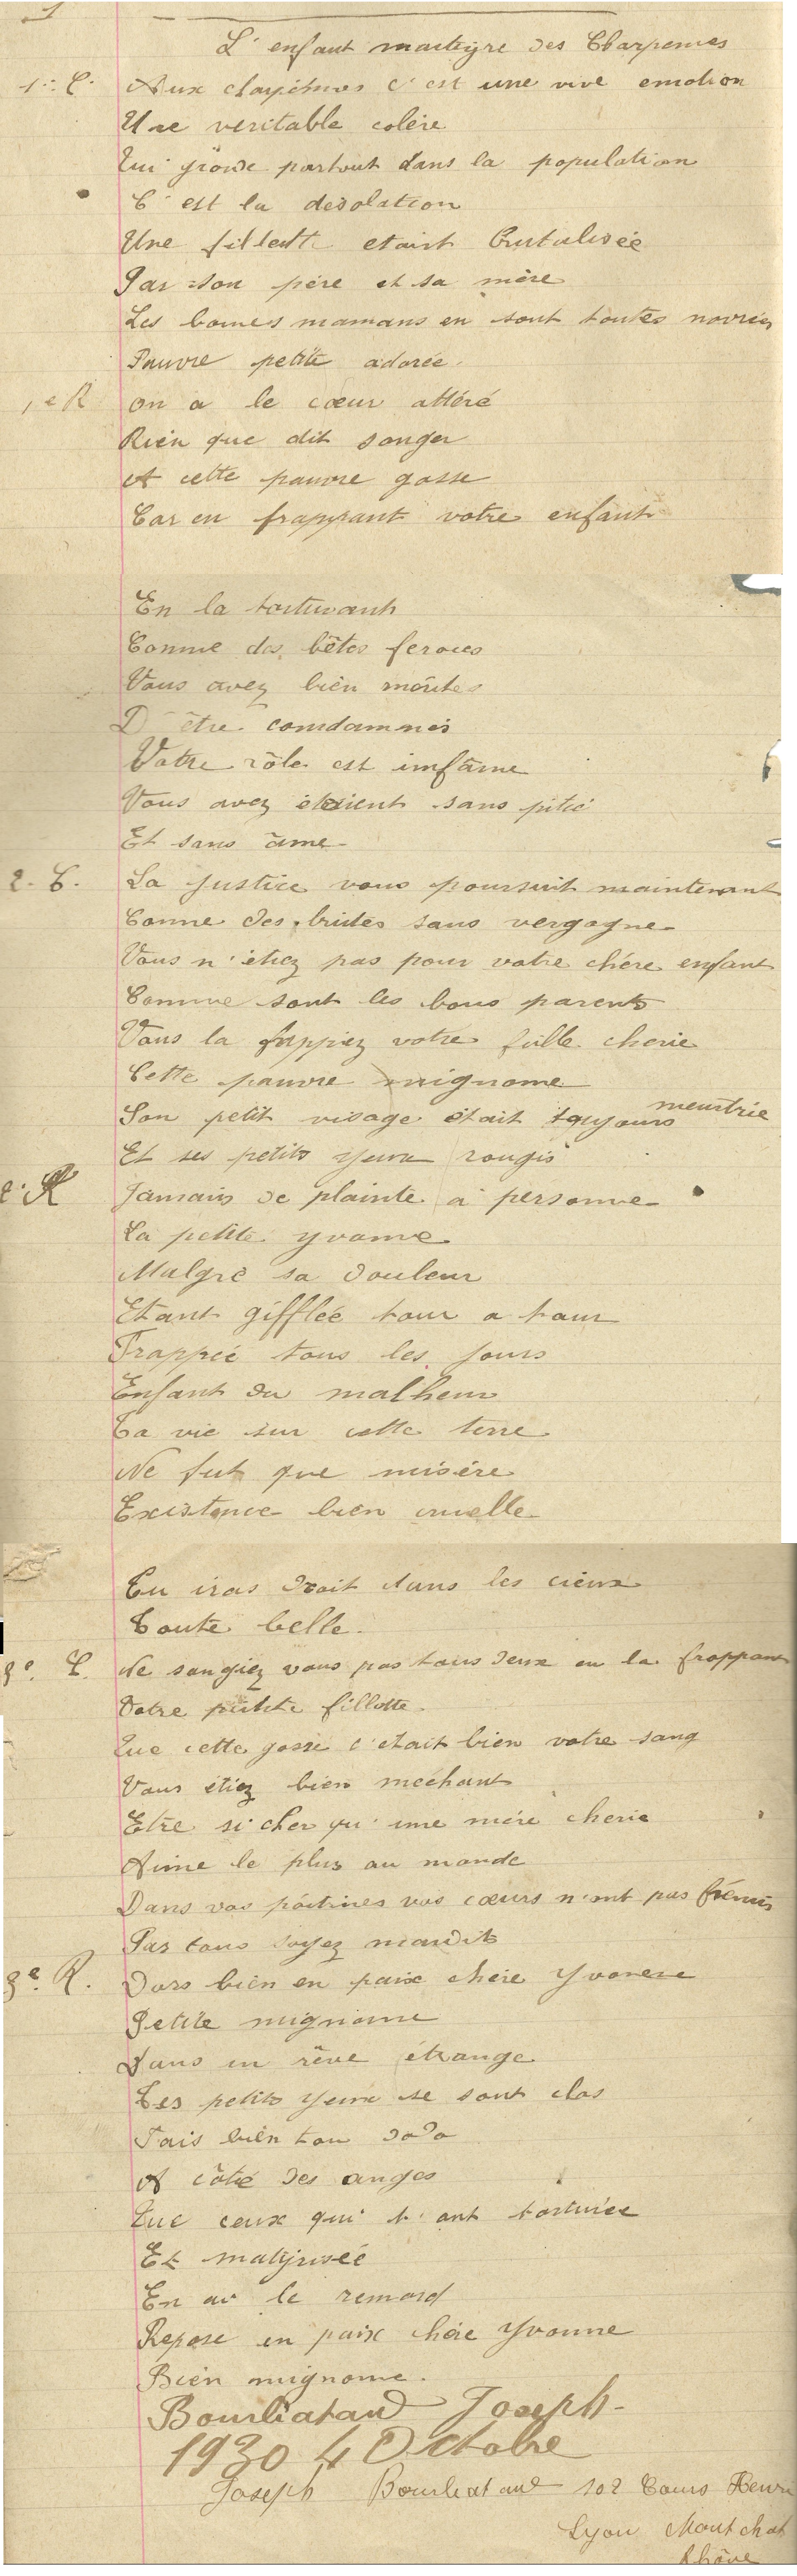 L'enfant martyre des Charpennes
1er C. Aux charpennes c'est une vive emotion
Une veritable colère
Qui gronde partout dans la population
C'est la desolation
Une fillette etait brutalisée
Par son père et sa mère
Les bonnes mamans en sont toutes navrées
Pauvre petite adorée.
1e R on a le cœur attéré
Rien que dit songer
A cette pauvre gosse
Car en frappant votre enfant
En la torturant
Comme des bêtes feroces
Vous avez bien mérités
D'être comdamnés
Votre rôle est imfâme
Vous avez étaient sans pitié
Et sans âme
2. C. La Justice vous poursuit maintenant
Comme des brutes sans vergogne
Vous n'étiez pas pour votre chére enfant
Comme sont les bons parents
Vous la frappiez votre fille cherie
Cette pauvre mignonne
Son petit visage était toujours meurtrie
Et ses petits yeux rougis
2e R Jamais de plainte à personne
La petite yvonne
Malgré sa douleur
Etant gifflée tour a tour
Frappée tous les jours
Enfant du malheur
Ta vie sur cette terre
Ne fut que misère
Existence bien cruelle
Tu iras droit dans les cieux
Toute belle.
3e. C. Ne songiez vous pas tous deux en la frappant
Votre petite fillette.
Que cette gosse c'etait bien votre sang
Vous étiez bien mechant
Etre si cher qu'une mère cherie
Aime le plus au monde
Dans vos poitrines vos cœurs n'ont pas frémis
Par tous soyez maudits
3e. R. Dors bien en paix chère Yvonne
Petite mignonne
Dans un rêve étrange
Tes petits yeux se sont clos
Fais bien ton dodo
A côté des anges
Que ceux qui t'ont torturée
Et matyrisée
En ai le remord
Repose en paix chère Yvonne
Bien mignonne.
Bourliataud Joseph
1930 4 Octobre
Joseph Bourliataud 102 Cours Henri
Lyon Montchat
Rhône